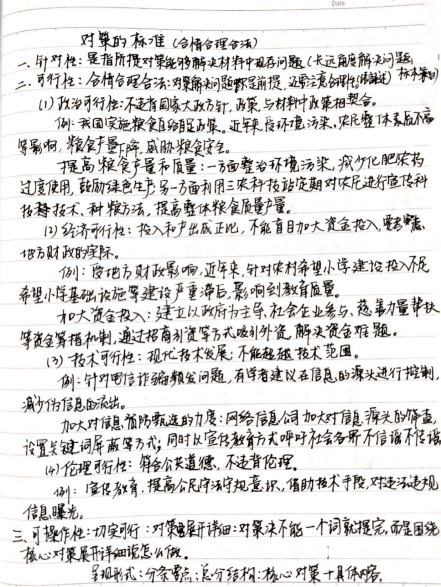 Date.
对策的标准（合情合理合法）
一、针对性：是指所提对策能够解决材料中现存问题（长远角度解决问题
二、可行性：合情合理合法：对策解决问题都是前提，还要注意合理性
(1) 政治可行性：不违背国家大政方针，政策与材料中政策相契合。
例：我国实施粮食自给自足政策。近年受环境污染，农民整体素质不高
等影响，粮食产量下降，威胁粮食安全。
提高粮食产量和质量：一方面整治环境污染，减少化肥农药
过度使用，鼓励绿色生产；另一方面利用三农科技站定期对农民进行宣传科
技技术、种粮方法，提高整体粮食质量产量。
(2) 经济可行性：投入和产出成正比，不能盲目加大资金投入，要考虑
地方财政的实际。
例：受地方财政影响，近年来，针对农村希望小学建设投入不足
希望小学基础设施等建设严重滞后，影响到教育质量。
加大资金投入：建立以政府为主导，社会企业参与、慈善力量帮扶
等资金筹措机制，通过招商引资等方式吸引外资，解决资金难题。
(3) 技术可行性：现代技术发展，不能超越技术范围。
例：针对电信诈骗频发问题，有学者建议在信息的源头进行控制，
减少伪信息的流出。
加大对信息预防甄选的力度：网络信息公司加大对信息源头的筛查，
设置关键词屏蔽等方式；同时以宣传教育方式呼吁社会各界不信谣不传谣
(4) 伦理可行性：符合公共道德，不违背伦理。
例：宣传教育，提高公民守法守规意识，借助技术手段，对违法违规
信息曝光。
三、可操作性：切实可行：对策要展开详细：对策决不能一个词就提完，而是围绕
核心对策展开详细说怎么做。
呈现形式：分条要点；总分结构：核心对策＋具体内容。